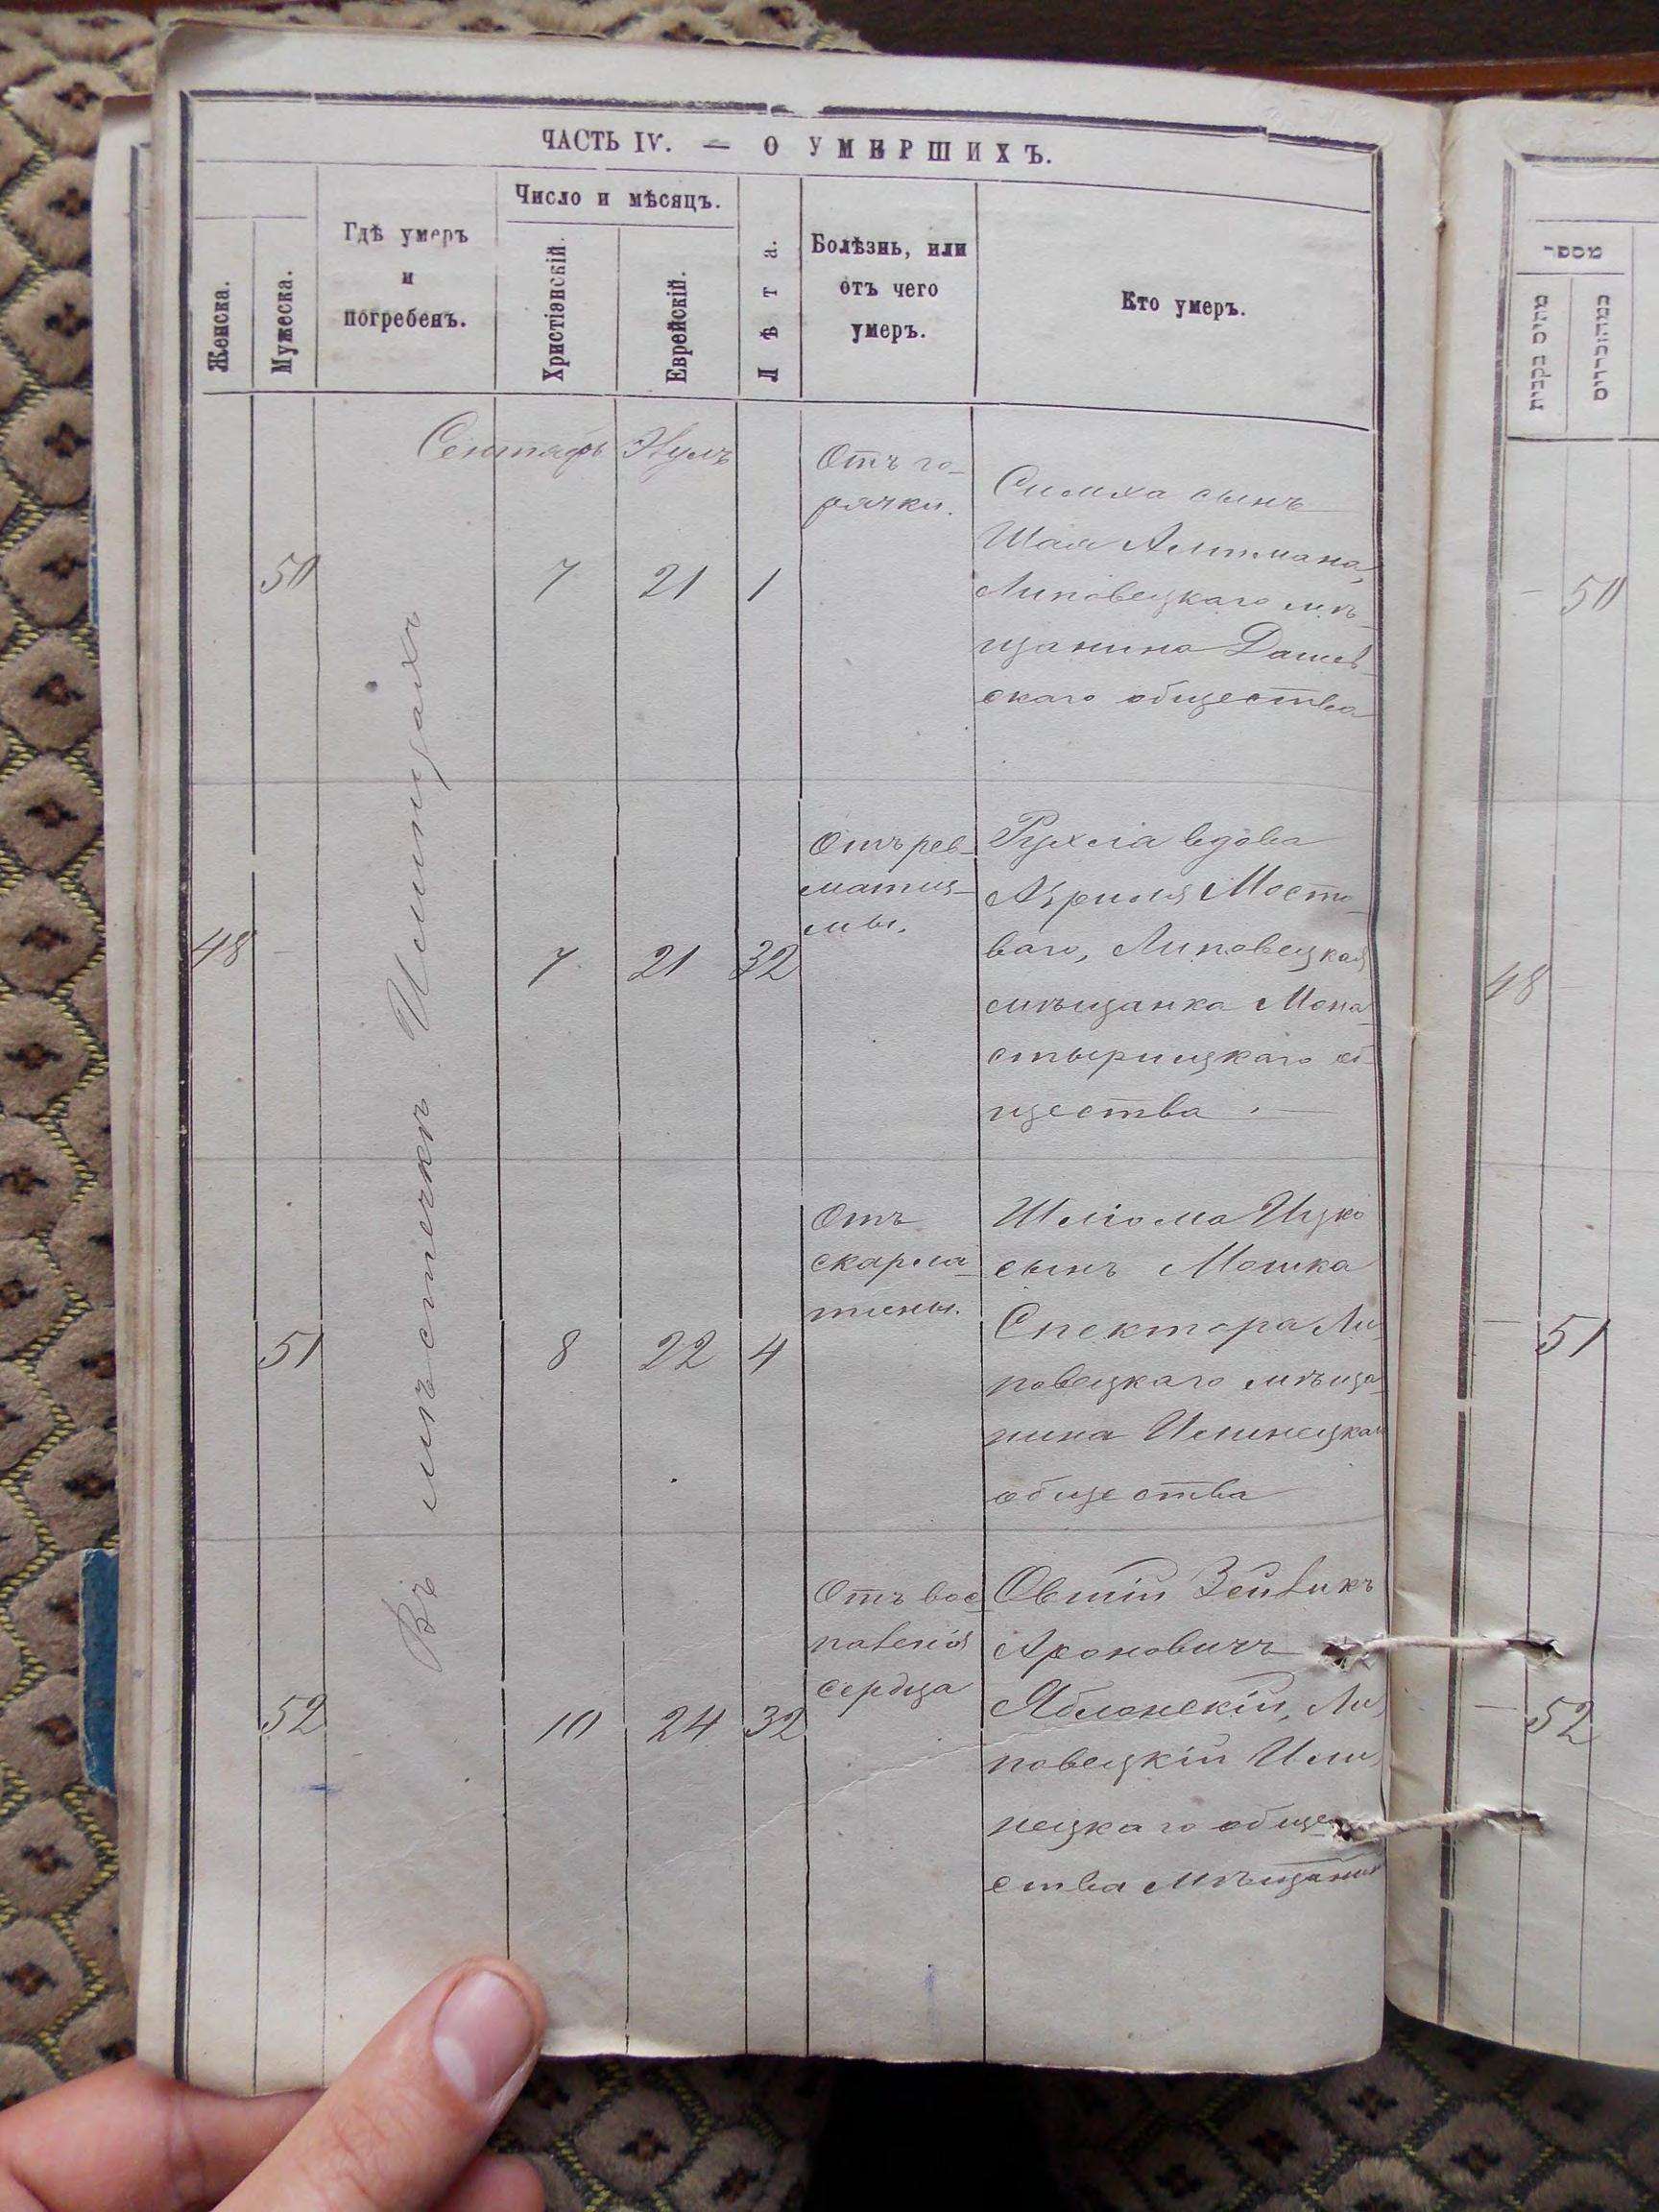 ЧАСТЬ IV. — О УМЕРШИХЪ.
Женска.
Мужеска.
Гдѣ умеръ
и
погребенъ.
Число и мѣсяцъ.
Христіанскій.
Еврейскій.
Лѣта.
Болѣзнь, или
отъ чего
умеръ.
Кто умеръ.
Въ мѣстечкѣ Илинцахъ
Сентябрь
50
7
21
1
Отъ го-
рячки.
Симха сынъ
Шая Альтмана,
Липовецкаго мѣ-
щанина Дашев-
скаго общества
48
-
7
21
32
Отъ рев-
матиз-
мы.
Рухля вдова
Азриля Мосто-
ваго, Липовецкая
мѣщанка Мона-
стырищкаго об-
щества.
51
8
22
4
Отъ
скарла-
тины.
Шліома Ицко
сынъ Мошка
Спектора Ли-
повецкаго мѣща-
нина Илинецкаго
общества
52
10
24
32
Отъ вос-
паленія
сердца
Овшій Зейвикъ
Ароновичъ
Яблонскій, Ли-
повецкій Или-
нецкаго обще-
ства мѣщанинъ
מספר
- 50
48 -
- 51
- 52